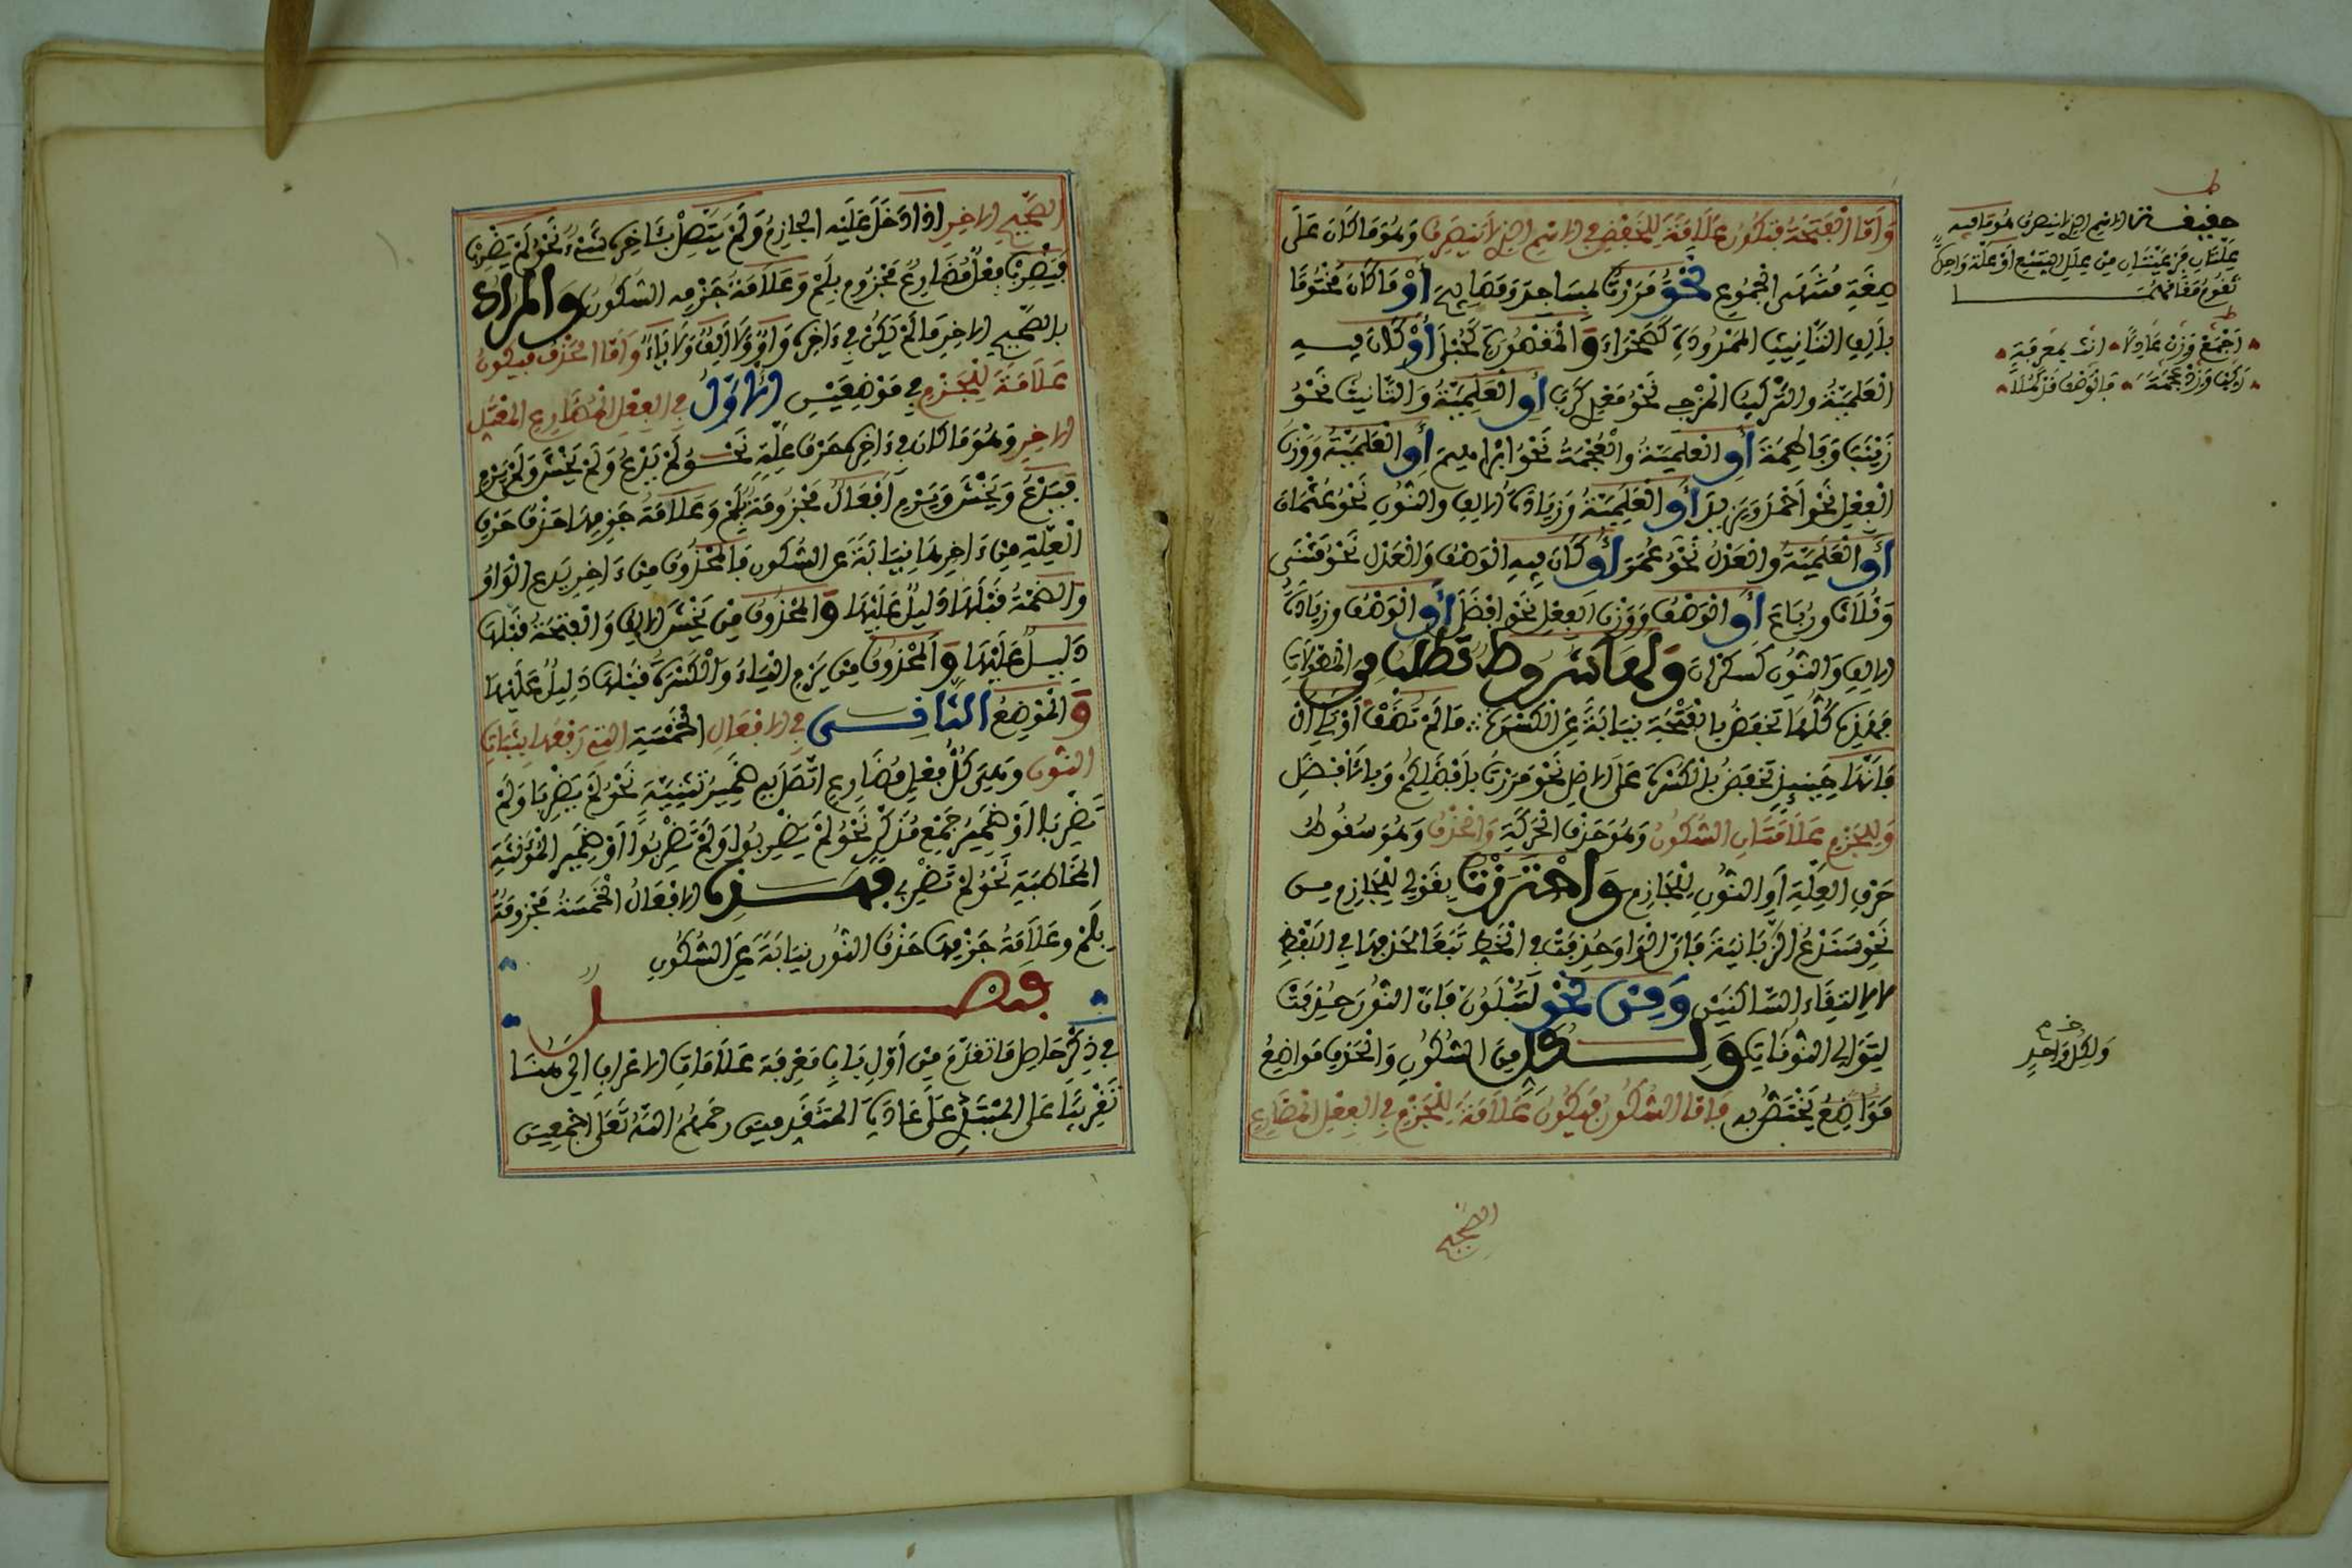 وَأَمَّا الْفَتْحَةُ فَتَكُونُ عَلَامَةً لِلْخَفْضِ فِي الِاسْمِ الَّذِي لَا يَنْصَرِفُ وَهُوَ مَا كَانَ عَلَى
صِيغَةِ مُنْتَهَى الْجُمُوعِ نَحْوُ مَرَرْتُ بِمَسَاجِدَ وَمَصَابِيحَ أَوْ مَا كَانَ مَخْتُومًا
بِأَلِفِ التَّأْنِيثِ الْمَمْدُودَةِ كَصَحْرَاءَ وَالْمَقْصُورَةِ كَحُبْلَى أَوْ كَانَ فِيهِ
الْعَلَمِيَّةُ وَالتَّرْكِيبُ الْمَزْجِي نَحْوُ مَعْدِيكَرِبَ أَوِ الْعَلَمِيَّةُ وَالتَّأْنِيثُ نَحْوُ
زَيْنَبَ وَفَاطِمَةَ أَوِ الْعَلَمِيَّةُ وَالْعُجْمَةُ نَحْوُ إِبْرَاهِيمَ أَوِ الْعَلَمِيَّةُ وَوَزْنُ
الْفِعْلِ نَحْوُ أَحْمَدَ وَيَزِيدَ أَوِ الْعَلَمِيَّةُ وَزِيَادَةُ الْأَلِفِ وَالنُّونِ نَحْوُ عُثْمَانَ
أَوِ الْعَلَمِيَّةُ وَالْعَدْلُ نَحْوُ عُمَرَ أَوْ كَانَ فِيهِ الْوَصْفُ وَالْعَدْلُ نَحْوُ مَثْنَى
وَثُلَاثَ وَرُبَاعَ أَوِ الْوَصْفُ وَوَزْنُ الْفِعْلِ نَحْوُ أَفْضَلَ أَوِ الْوَصْفُ وَزِيَادَةُ
الْأَلِفِ وَالنُّونِ كَسَكْرَانَ وَلَهَا شُرُوطٌ تُطْلَبُ مِنَ الْمُطَوَّلَاتِ
فَهَذِهِ كُلُّهَا تُخْفَضُ بِالْفَتْحَةِ نِيَابَةً عَنِ الْكَسْرَةِ مَا لَمْ تُضَفْ أَوْ تَلِي الْ
فَإِنَّهَا حِينَئِذٍ تُخْفَضُ بِالْكَسْرَةِ عَلَى الْأَصْلِ نَحْوُ مَرَرْتُ بِأَفْضَلِكُمْ وَبِالْأَفْضَلِ
وَلِلْجَزْمِ عَلَامَتَانِ السُّكُونُ وَهُوَ حَذْفُ الْحَرَكَةِ وَالْحَذْفُ وَهُوَ سُقُوطُ
حَرْفِ الْعِلَّةِ أَوِ النُّونِ لِلْجَازِمِ وَاحْتَرَزْتُ بِقَوْلِي لِلْجَازِمِ مِنْ
نَحْوِ سَنَدْعُ الزَّبَانِيَةَ فَإِنَّ الْوَاوَ حُذِفَتْ فِي الْخَطِّ تَبَعًا لِحَذْفِهَا فِي اللَّفْظِ
لِالْتِقَاءِ السَّاكِنَيْنِ وَمِنْ نَحْوِ لَتُبْلَوُنَّ فَإِنَّ النُّونَ حُذِفَتْ
لِتَوَالِي النُّونَاتِ وَلِكُلٍّ مِنَ السُّكُونِ وَالْحَذْفِ مَوَاضِعُ
مَوَاضِعُ يَخْتَصُّ بِهِ فَأَمَّا السُّكُونُ فَيَكُونُ عَلَامَةً لِلْجَزْمِ فِي الْفِعْلِ الْمُضَارِعِ
الصَّحِيحِ
ط
حقيقة الاسم الذي لا ينصرف هو ما فيه
علتان فرعيتان من علل تسع أو علة واحدة
تقوم مقامهما
ط
اجْمَعْ وَزِنْ عَادِلًا أَنِّثْ بِمَعْرِفَةٍ
رَكِّبْ وَزِدْ عُجْمَةً فَالْوَصْفُ قَدْ كَمُلَا
خ م
وَلِكُلِّ وَاحِدٍ
الصَّحِيحِ الْآخِرِ إِذَا دَخَلَ عَلَيْهِ الْجَازِمُ وَلَمْ يَتَّصِلْ بِآخِرِهِ شَيْءٌ نَحْوُ لَمْ يَضْرِبْ
فَيَضْرِبْ فِعْلٌ مُضَارِعٌ مَجْزُومٌ بِلَمْ وَعَلَامَةُ جَزْمِهِ السُّكُونُ وَالْمُرَادُ
بِالصَّحِيحِ الْآخِرِ مَا لَمْ يَكُنْ فِي آخِرِهِ وَاوٌ وَلَا أَلِفٌ وَلَا يَاءٌ وَأَمَّا الْحَذْفُ فَيَكُونُ
عَلَامَةً لِلْجَزْمِ فِي مَوْضِعَيْنِ الْأَوَّلُ فِي الْفِعْلِ الْمُضَارِعِ الْمُعْتَلِّ
الْآخِرِ وَهُوَ مَا كَانَ فِي آخِرِهِ حَرْفُ عِلَّةٍ نَحْوُ لَمْ يَدْعُ وَلَمْ يَخْشَ وَلَمْ يَرْمِ
فَيَدْعُ وَيَخْشَ وَيَرْمِ أَفْعَالٌ مَجْزُومَةٌ بِلَمْ وَعَلَامَةُ جَزْمِهَا حَذْفُ حَرْفِ
الْعِلَّةِ مِنْ آخِرِهَا نِيَابَةً عَنِ السُّكُونِ فَالْمَحْذُوفُ مِنْ آخِرِ يَدْعُ الْوَاوُ
وَالضَّمَّةُ قَبْلَهَا دَلِيلٌ عَلَيْهَا وَالْمَحْذُوفُ مِنْ يَخْشَ الْأَلِفُ وَالْفَتْحَةُ قَبْلَهَا
دَلِيلٌ عَلَيْهَا وَالْمَحْذُوفُ مِنْ يَرْمِ الْيَاءُ وَالْكَسْرَةُ قَبْلَهَا دَلِيلٌ عَلَيْهَا
وَالْمَوْضِعُ الثَّانِي فِي الْأَفْعَالِ الْخَمْسَةِ الَّتِي رَفْعُهَا بِثَبَاتِ
النُّونِ وَهِيَ كُلُّ فِعْلٍ مُضَارِعٍ اتَّصَلَ بِهِ ضَمِيرُ تَثْنِيَةٍ نَحْوُ لَمْ يَضْرِبَا وَلَمْ
تَضْرِبَا أَوْ ضَمِيرُ جَمْعِ مُذَكَّرٍ نَحْوُ لَمْ يَضْرِبُوا وَلَمْ تَضْرِبُوا أَوْ ضَمِيرُ الْمُؤَنَّثَةِ
الْمُخَاطَبَةِ نَحْوُ لَمْ تَضْرِبِي فَهَذِهِ الْأَفْعَالُ الْخَمْسَةُ مَجْزُومَةٌ
بِلَمْ وَعَلَامَةُ جَزْمِهَا حَذْفُ النُّونِ نِيَابَةً عَنِ السُّكُونِ
فَصْلٌ
فِي ذِكْرِ حَاصِلِ مَا تَقَدَّمَ مِنْ أَوَّلِ بَابِ مَعْرِفَةِ عَلَامَاتِ الْإِعْرَابِ إِلَى هُنَا
تَمْرِينًا عَلَى الْمُبْتَدِي عَلَى عَادَةِ الْمُتَقَدِّمِينَ رَحِمَهُمُ اللَّهُ تَعَالَى أَجْمَعِينَ